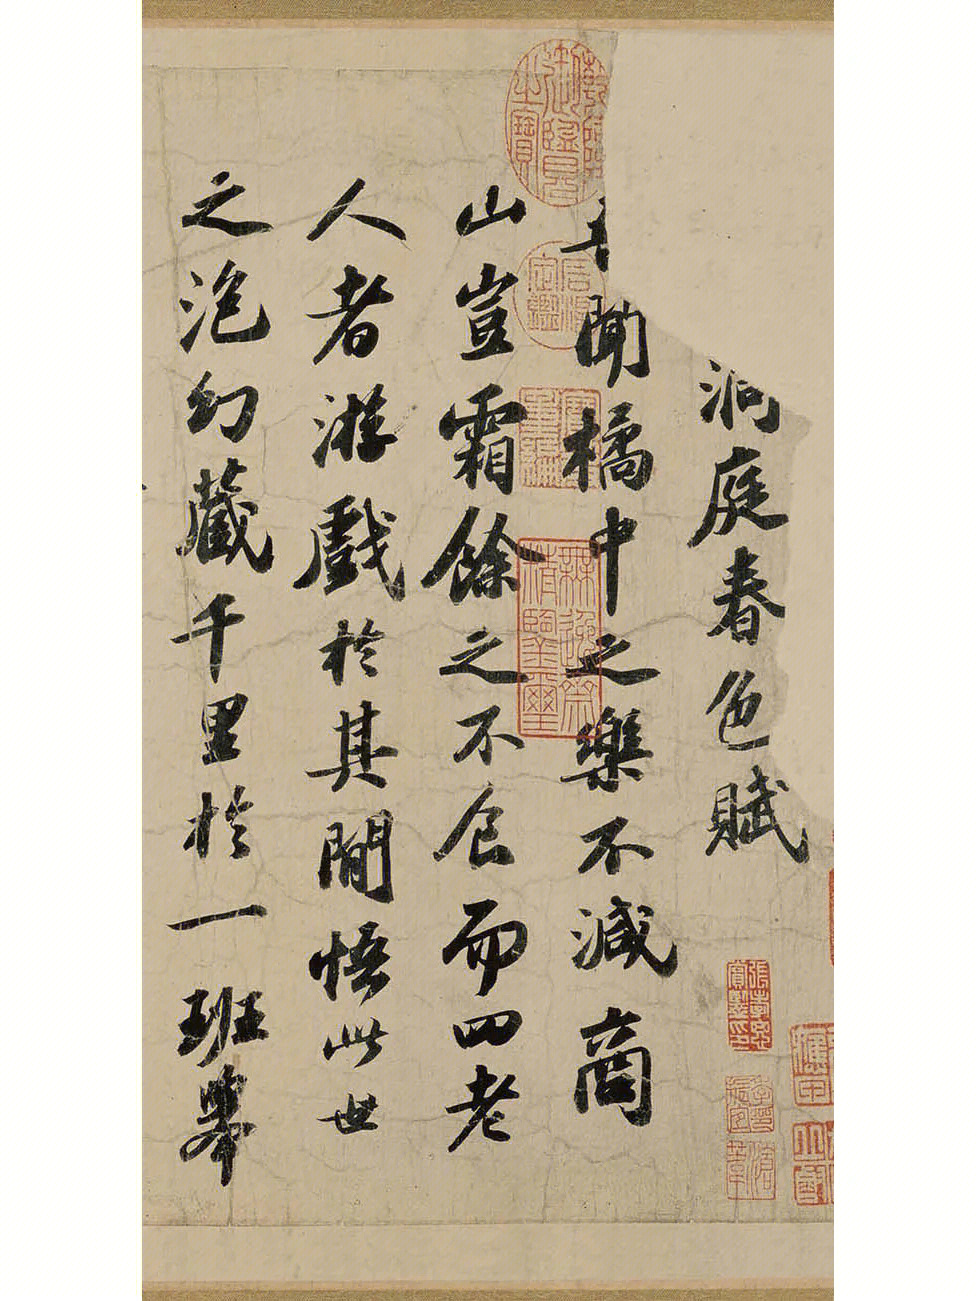 洞庭春色賦
吾聞橘中之樂不減商
山豈霜餘之不食而四老
人者游戲於其間悟此世
之泡幻藏千里於一班舉
乾隆御覽之寶
石渠寶笈
無逸齋精鑒璽